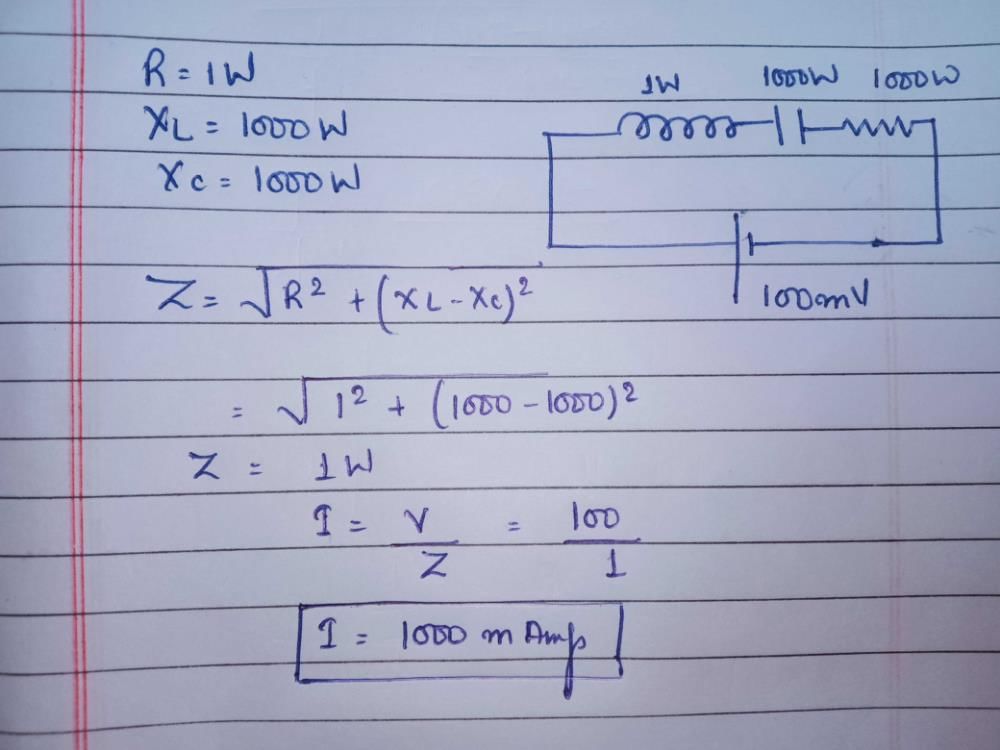 R = 1W
XL = 1000W
Xc = 1000W
1W 1000W 1000W
100mV
Z = √R² + (XL - Xc)²
= √1² + (1000 - 1000)²
Z = 1W
I = V/Z = 100/1
I = 1000 m Amp